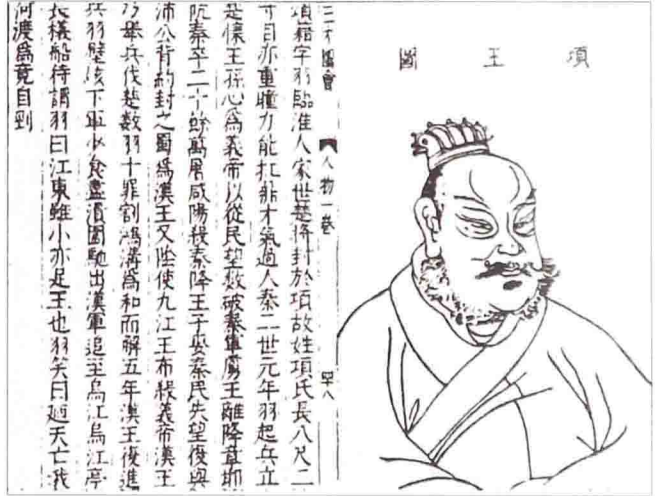 項王圖
三才圖會 人物一卷 罕八
項籍字羽臨淮人家世楚將封於項故姓項氏長八尺二
寸目亦重瞳力能扛鼎才氣過人秦二世元年羽起兵立
楚懷王孫心爲義帝以從民望数破秦軍虜王離降章邯
阬秦卒二十餘萬屠咸陽殺秦降王子嬰秦民失望復與
沛公背約封之蜀爲漢王又陰使九江王布殺義帝漢王
乃舉兵伐楚數羽十罪割鴻溝爲和而解五年漢王復進
兵羽壁垓下軍少食盡潰圍馳出漢軍追至烏江烏江亭
長檥船待謂羽曰江東雖小亦足王也羽笑曰廼天亡我
何渡爲竟自剄